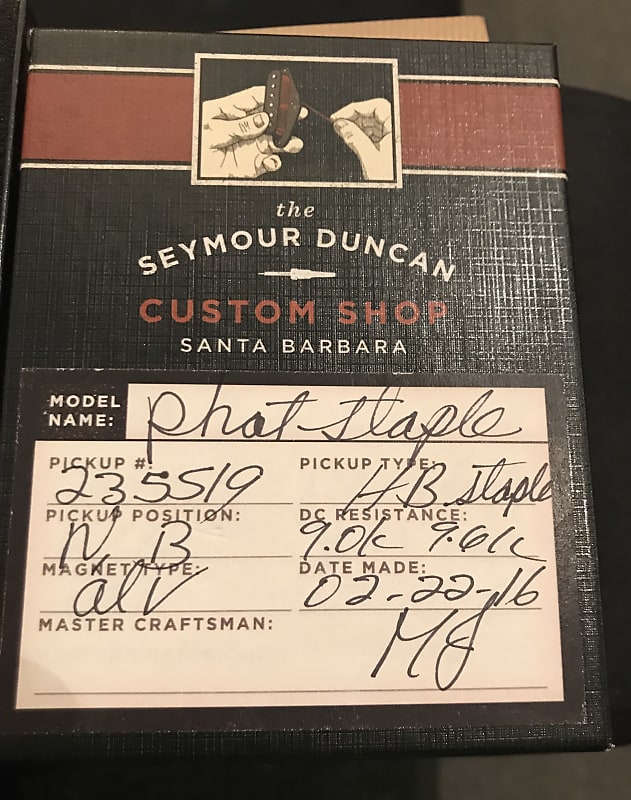 the
SEYMOUR DUNCAN
CUSTOM SHOP
SANTA BARBARA
MODEL NAME: Phat Staple
PICKUP #: 235519 PICKUP TYPE: HB Staple
PICKUP POSITION: N B DC RESISTANCE: 9.0k 9.61k
MAGNET TYPE: alV DATE MADE: 02-22-16
MASTER CRAFTSMAN: MJ